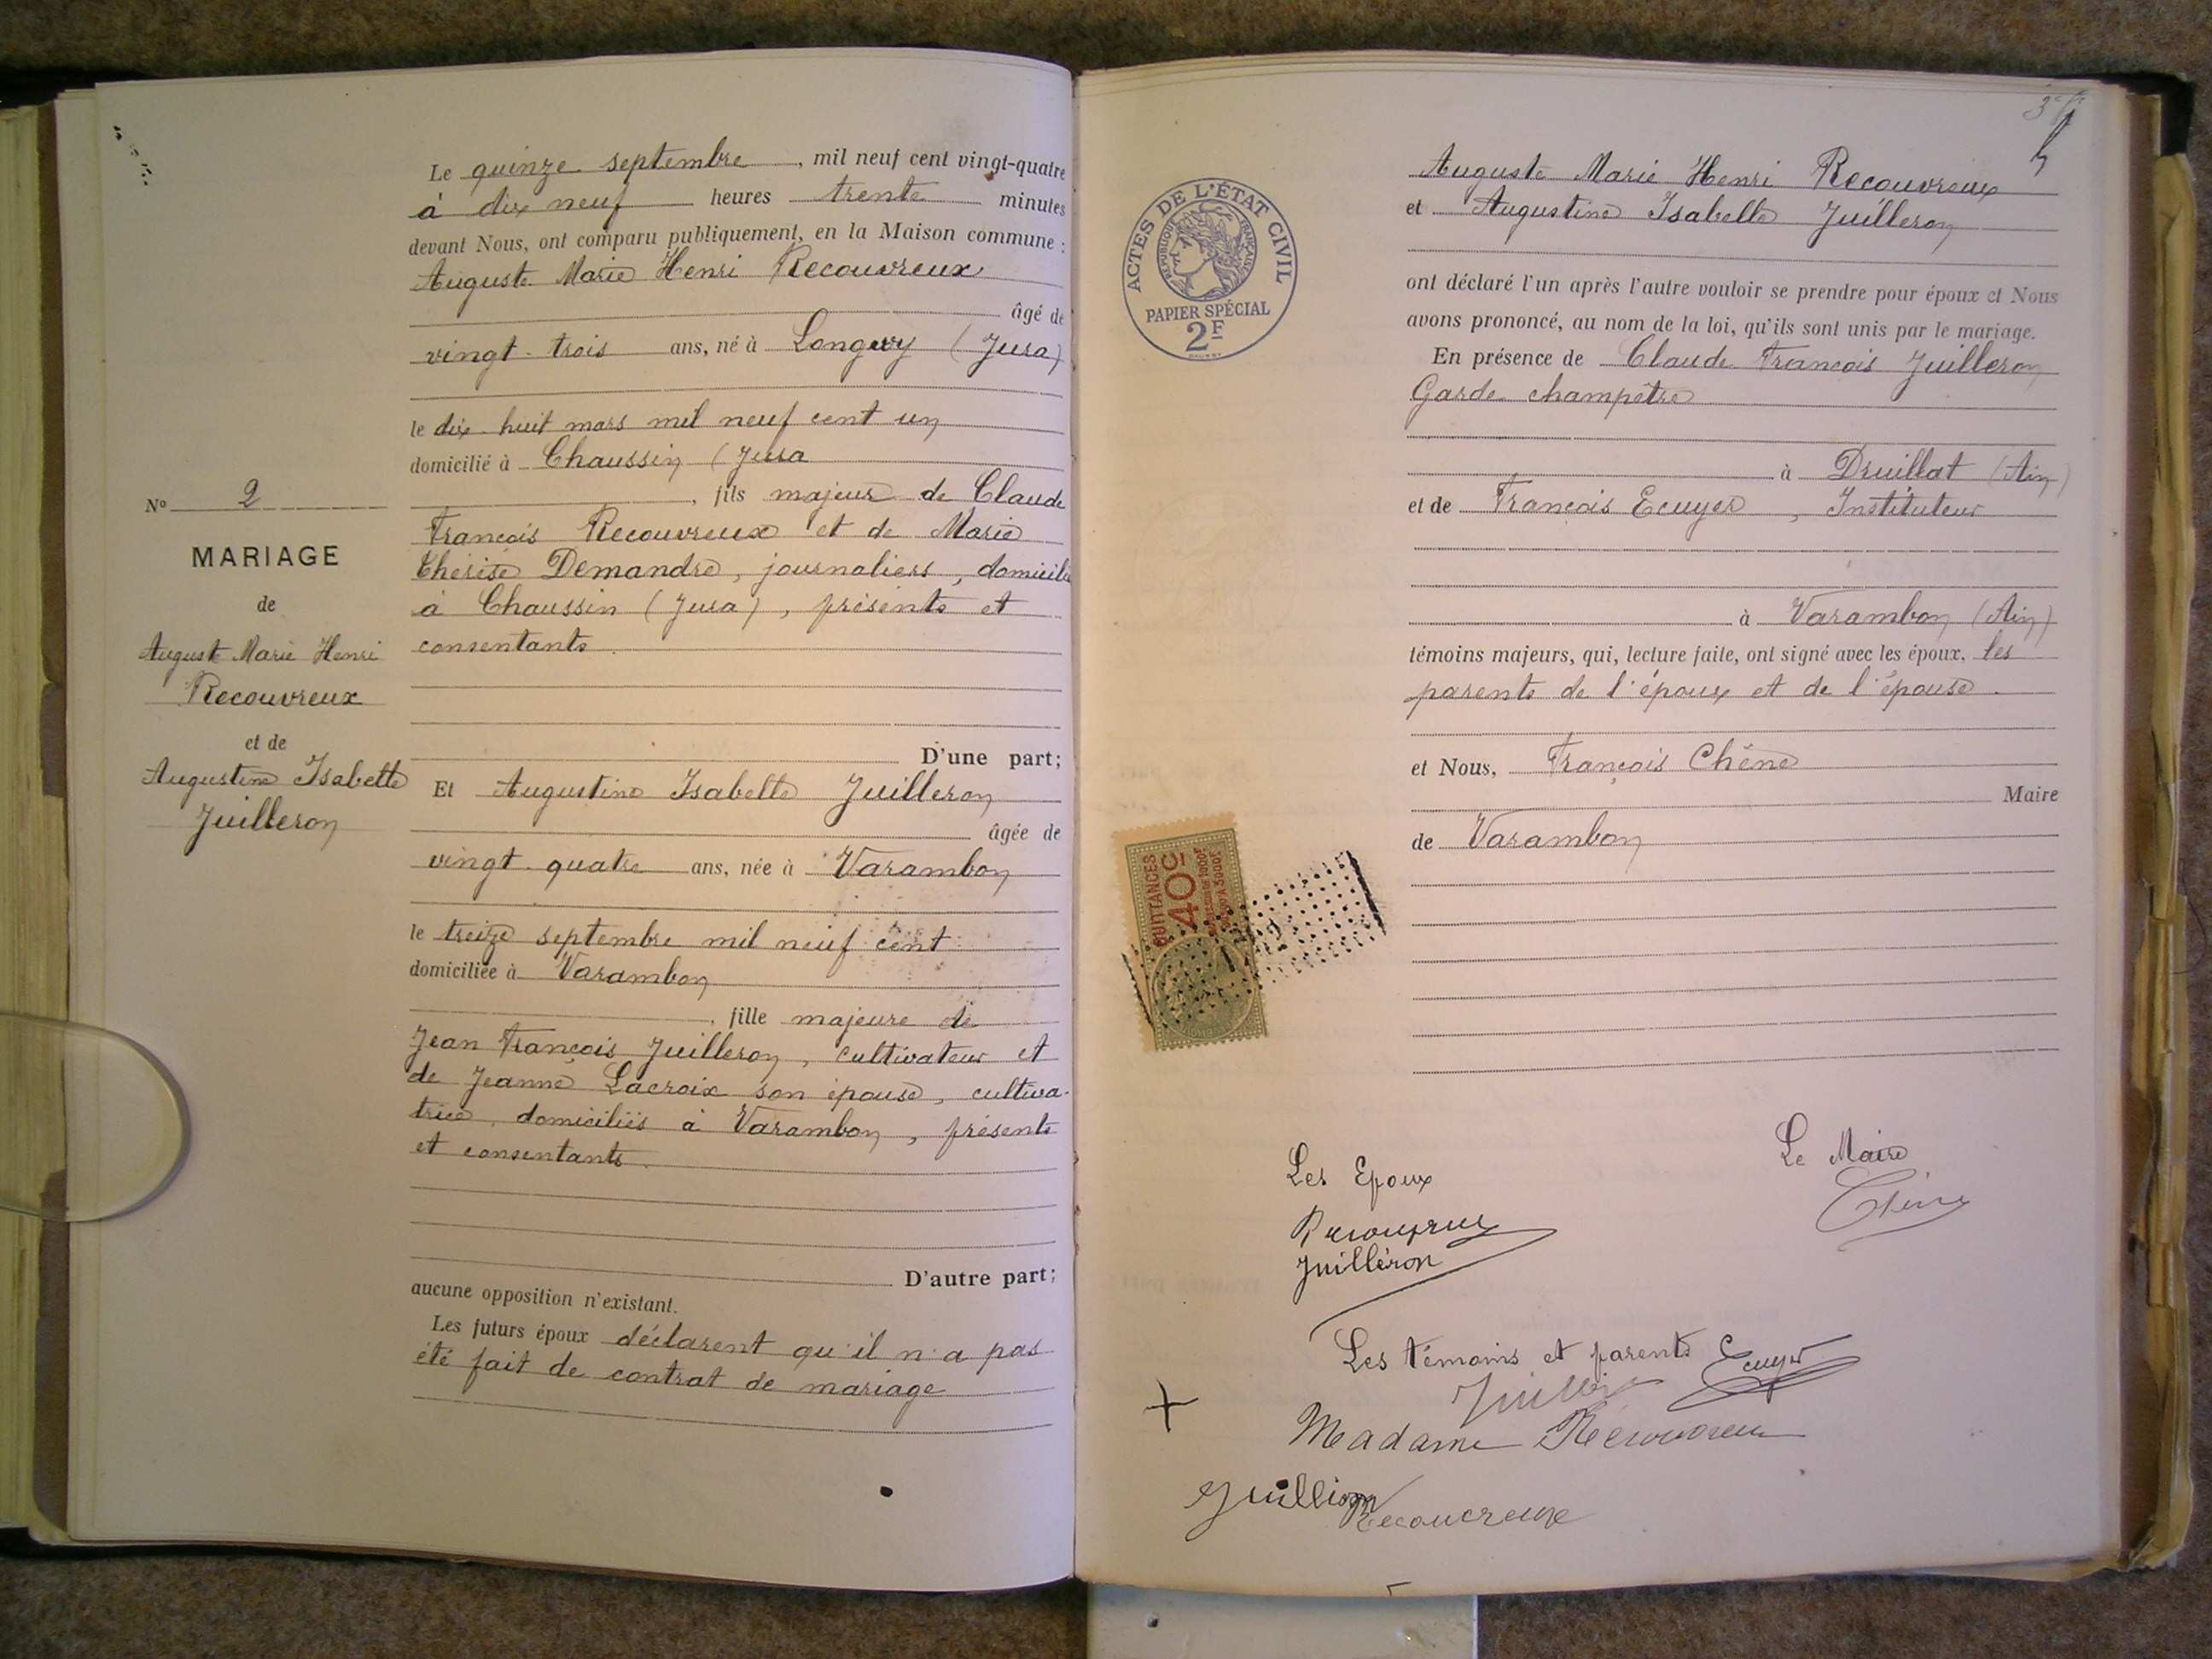 Le quinze septembre, mil neuf cent vingt-quatre
à dix neuf heures trente minutes
devant Nous, ont comparu publiquement, en la Maison commune :
Auguste Marie Henri Recouvreux
âgé de
vingt-trois ans, né à Longwy (Jura)
le dix-huit mars mil neuf cent un
domicilié à Chaussin (Jura
, fils majeur de Claude
François Recouvreux et de Marie
Thérèse Demandre, journaliers, domicilié
à Chaussin (Jura), présents et
consentants.
D'une part;
Et Augustine Isabelle Juilleron
âgée de
vingt-quatre ans, née à Varambon
le treize septembre mil neuf cent
domiciliée à Varambon
, fille majeure de
Jean François Juilleron, cultivateur et
de Jeanne Lacroix son épouse, cultiva-
trice, domiciliés à Varambon, présents
et consentants.
D'autre part;
aucune opposition n'existant.
Les futurs époux déclarent qu'il n'a pas
été fait de contrat de mariage
No 2
MARIAGE
de
Auguste Marie Henri
Recouvreux
et de
Augustine Isabelle
Juilleron
ACTES DE L'ÉTAT CIVIL
RÉPUBLIQUE FRANÇAISE
PAPIER SPÉCIAL
2F
Auguste Marie Henri Recouvreux
et Augustine Isabelle Juilleron
ont déclaré l'un après l'autre vouloir se prendre pour époux et Nous
avons prononcé, au nom de la loi, qu'ils sont unis par le mariage.
En présence de Claude François Juilleron
Garde champêtre
à Druillat (Ain)
et de François Ecuyer, Instituteur
à Varambon (Ain)
témoins majeurs, qui, lecture faite, ont signé avec les époux, les
parents de l'époux et de l'épouse.
et Nous, François Chêne
Maire
de Varambon
QUITTANCES
40c
Le Maire
Chêne
Les Epoux
Recouvreux
Juilléron
Les témoins et parents Ecuyer
Madame Recouvreux
Juilleron
Recouvreux